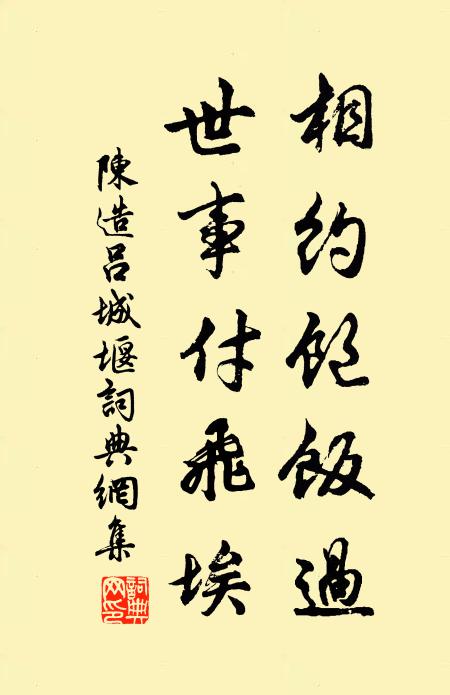 相約飽飯過
世事付飛埃
陳造呂城堰詞典網集
詞典
网印